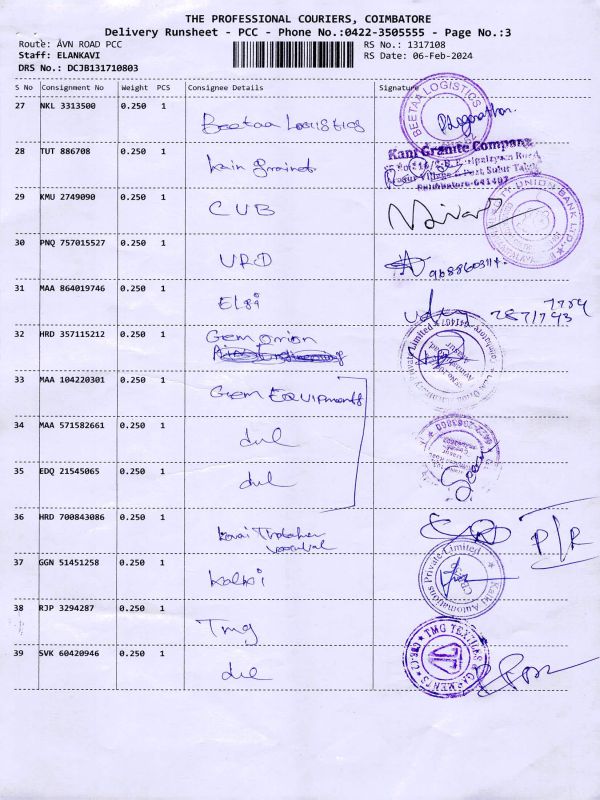 THE PROFESSIONAL COURIERS, COIMBATORE
Delivery Runsheet - PCC - Phone No.:0422-3505555 - Page No.:3
Route: AVN ROAD PCC
RS No.: 1317108
Staff: ELANKAVI
RS Date: 06-Feb-2024
DRS No.: DCJB131710803
S No Consignment No Weight PCS Consignee Details Signature
27 NKL 3313500 0.250 1 Beetaa Logistics
BEETAA LOGISTICS
28 TUT 886708 0.250 1
Kani Granite Company
29 KMU 2749090 0.250 1 CUB
UNION BANK LTD.
30 PNQ 757015527 0.250 1 URD
31 MAA 864019746 0.250 1 Elgi
32 HRD 357115212 0.250 1 Gem orion
33 MAA 104220301 0.250 1 Gem Equipments
34 MAA 571582661 0.250 1
35 EDQ 21545065 0.250 1
36 HRD 700843086 0.250 1
P/R
37 GGN 51451258 0.250 1 kalki
Kalki Automations Private Limited
38 RJP 3294287 0.250 1 Tmg
39 SVK 60420946 0.250 1
TMG TEXTILES & GARMENTS